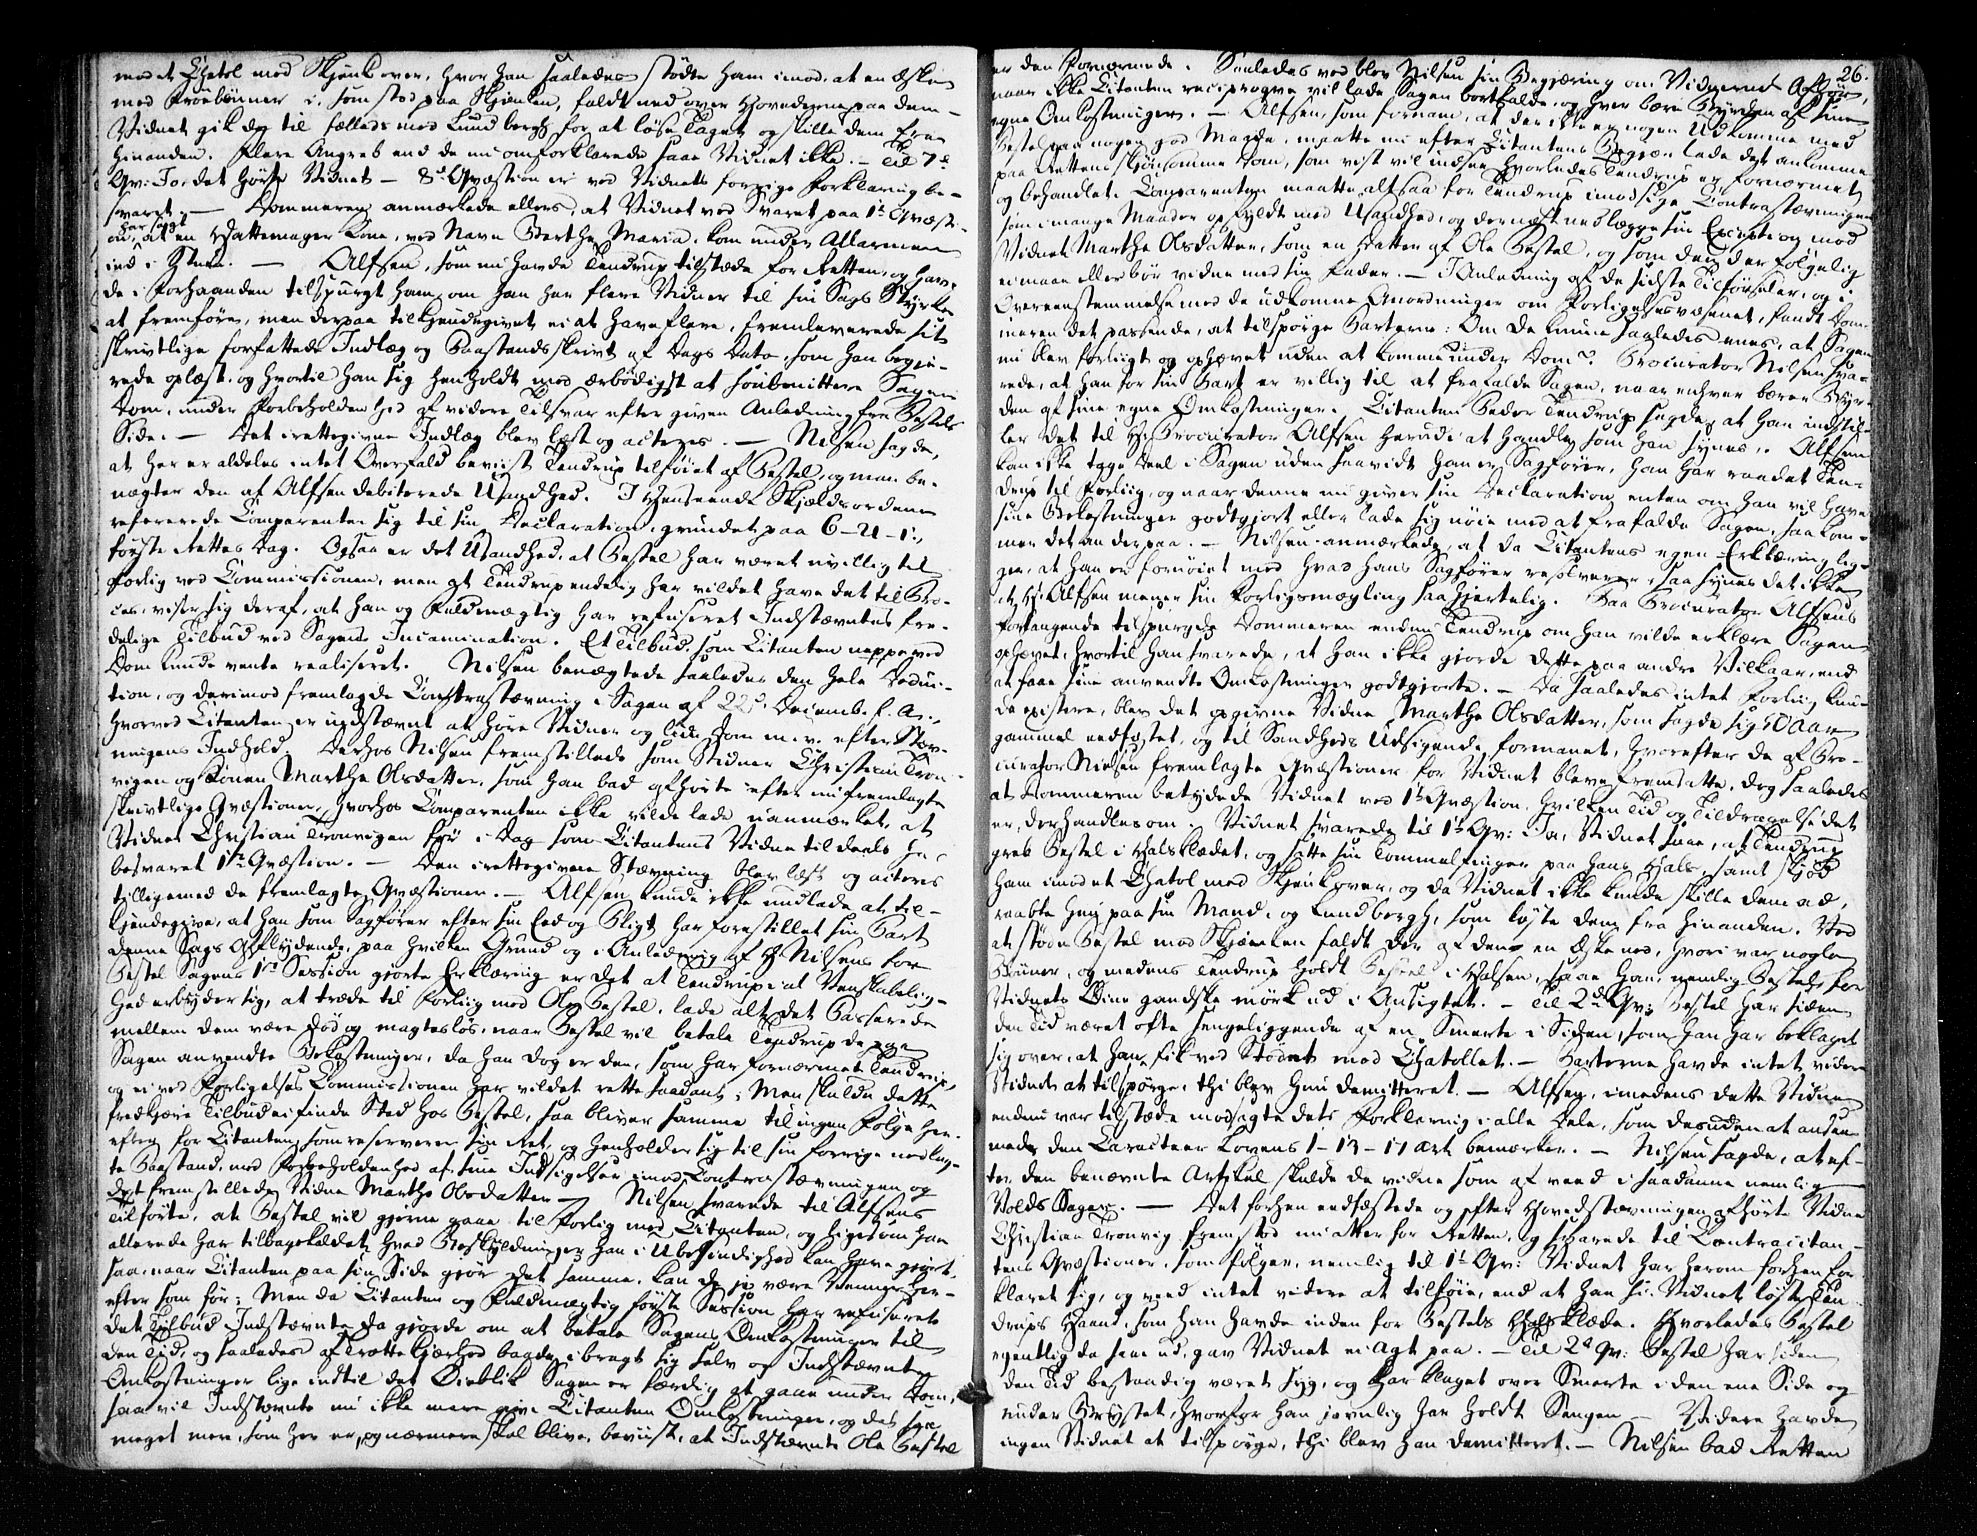 mod et Chatol med Skjænk over, hvor han saaledes stødte ham imod, at en Æske
med Prøebønner i, som stod paa Skjænken, faldt ned over Hovederne paa dem –
Vidnet gik da til fælleds med Lundbergh for at løse Taget og skille dem fra
hinanden. Flere Angreb end de nu omforklarede saae Vidnet ikke. – Til 7de
Qv: Jo, det hørte Vidnet – 8de Qvæstion er ved Vidnets forrige Forklaring be-
svaret. – Dommeren anmærkede ellers, at Vidnet ved Svaret paa 1te Qvæsti-
on, har sagt at en Hattemager Kone, ved Navn Berthe Maria, kom under Allarmen
ind i Stuen. – Alfsen, som nu havde Tendrup tilstæde for Retten, og hav-
de i Forhaanden tilspurgt ham, om han har flere Vidner til sin Sags Styrke
at fremføre, men derpaa tilkjendegivet ei at have flere, fremleverede sit
skrivtlige forfattede Indlæg og Paastandsskrivt af Dags Dato, som han begjæ-
rede oplæst, og hvortil han sig henholdt med ærbødigst at soubmittere Sagen
Dom, under Forbeholdenhed af videre Tilsvar efter given Anledning fra Gestels
Side. – Det irettegivne Indlæg blev læst og acteres. – Nilsen sagde,
at her er aldeles intet Overfald beviist Tendrup tilføiet af Gestel, og man be-
nægter den af Alfsen debiterede Usandhed. I Henseende Skjældsordene
refererede Comparenten sig til sin Declaration, grundet paa 6–21–1.,
første Rettes Dag. Ogsaa er det Usandhed, at Gestel har været uvillig til
Forlig ved Commissionen, men at Tendrup endelig har vildet have det til Pro-
ces, viser sig deraf, at han og Fuldmægtig har refuseret Indstævntes fre-
delige Tilbud ved Sagens Incamination. Et Tilbud, som Citanten neppe ved
Dom kunde vente realiseret. Nilsen benægtede saaledes den hele Deduc-
tion, og derimod fremlagde Contrastævning i Sagen af 22de Decemb. f. A.,
hvorved Citanten er indstævnt at høre Vidner og lide Dom m. v. efter Stæv-
ningens Indhold. Derhos Nilsen fremstillede som Vidner Christian Tron-
vigen og Konen Marthe Olsdatter, som han bad afhørte efter nu fremlagte
skrivtlige Qvæstioner, hvorhos Comparenten ikke vilde lade uanmærket, at
Vidnet Christian Tronvigen før i Dag som Citantens Vidne tildeels har
besvaret 1te Qvæstion. – Den irettegivne Stævning blev læst og acteres
tilligemed de fremlagte Qvæstioner. – Alfsen kunde ikke undlade at til-
kjendegive, at han som Sagfører efter sin Eed og Pligt har forestillet sin Part
denne Sags Afflydende, paa hvilken Grund og i Anledning af Hr Nilsens for
Gestel Sagens 1te Session gjorte Erklæring er det at Tendrup i al Venskabelig-
hed erbyder sig, at træde til Forliig med Ole Gestel, lade alt det Passerede
mellem dem være død og magtesløs, naar Gestel vil betale Tendrup de paa
Sagen anvendte Bekostninger, da han dog er den, som har fornærmet Tendrup,
og ei ved Forligelses Commissionen har vildet rette saadant; Men skulde dette
fredkjære Tilbud ei finde Sted hos Gestel, saa bliver samme til ingen Følge her-
efter for Citanten, som reserverer sin Ret, og henholder sig til sin forrige nedlag-
te Paastand, med Forbeholdenhed af sine Indsigelser imod Contrastævningen og
det fremstillede Vidne Marthe Olsdatter – Nilsen svarede til Alfsens
Tilførte, at Gestel vil gjerne gaae til Forlig med Citanten, og ligesom han
allerede har tilbagekaldet, hvad Beskyldninger han i Ubesindighed kan have gjort,
saa naar Citanten paa sin Side gjør det samme, kan de jo være Venner her-
efter som før; Men da Citanten og Fuldmægtig første Session har refuseret
det Tilbud Indstævnte da gjorde om at betale Sagens Omkostninger til
den Tid, og saaledes af Trættekjærhed baade i bragt sig selv og Indstævnte
Omkostninger lige indtil det Øieblik Sagen er færdig at gaae under Dom,
saa vil Indstævnte nu ikke mere give Citanten Omkostninger, og det saa
meget mere, som her er, og nærmere skal blive, beviist, at Indstævnte Ole Gestel
26.
er den Fornærmede. Saaledes ved blev Nilsen sin Begjæring om Vidnernes Afhør,
naar ikke Citanten reciproqve vil lade Sagen bortfalde, og hver bære Byrden af sine
egne Omkostninger. – Alfsen, som fornam, at der ikke er nogen Udkomme med
Gestel paa nogen god Maade, maatte nu efter Citantens Begjær lade det ankomme
paa Rettens skjønsomme Dom, som vist vil indsee hvorledes Tendrup er fornærmet
og behandlet. Comparenten maatte altsaa for Tendrup imodsige Contrastævningen
som i mange Maader opfyldt med Usandhed, og dernæst nedlægge sin Exception mod
Vidnet Marthe Olsdatter, som en Datter af Ole Gestel, og som den der følgelig
ei maae eller bør vidne med sin Fader. – I Anledning af de sidste Tilførseler, og i
Overeenstemmelse med de udkomne Anordninger om Forligelsesvæsenet, fandt Dom-
meren det passende, at tilspørge Parterne: Om de kunne saaledes enes, at Sagen
nu blev forliigt og ophævet uden at komme under Dom? Procurator Nilsen sva-
rede, at han for sin Part er villig til at frafalde Sagen, naar enhver bærer Byr-
den af sine egne Omkostninger. Citanten Peder Tendrup sagde, at han indstil-
ler det til Hr Procurator Alfsen herudi at handle, som han synes. Alfsen
kan ikke tage Deel i Sagen uden saavidt han er Sagfører, han har raadet Ten-
drup til Forliig, og naar denne nu giver sin Declaration, enten om han vil have
sine Bekostninger godtgjort eller lade sig nøie med at frafalde Sagen, saa kom-
mer det an derpaa. – Nilsen anmærkede, at da Citantens egen Erklæring lig-
ger, at han er fornøiet med hvad hans Sagfører resolverer, saa synes det ikke,
at Hr Alfsen mener sin Forligsmægling saa hjertelig. Paa Procurator Alfsens
Forlangende tilspurgde Dommeren endnu Tendrup om han vilde erklære Sagen
ophævet, hvortil han svarede, at han ikke gjorde dette paa andre Vilkaar, end
at faae sine anvendte Omkostninger godtgjorte. – Da saaledes intet Forliig kun-
de existere, blev det opgivne Vidne Marthe Olsdatter, som sagde sig 50 Aar
gammel eedfæstet, og til Sandheds Udsigende formanet, hvorefter de af Pro-
curator Nielsen fremlagte Qvæstioner for Vidnet bleve fremsatte, dog saaledes
at Dommeren betydede Vidnet ved 1te Qvæstion, hvilken Tid og Tildragelse det
er, der handles om. Vidnet svarede til 1te Qv: Ja, Vidnet saae, at Tendrup
greb Gestel i Halsklædet, og satte sin Tommelfinger paa hans Hals, samt skjød
ham imod et Chatol med Skjænk over, og da Vidnet ikke kunde skille dem ad,
raabte hun paa sin Mand, og Lundbergh, som løste dem fra hinanden. Ved
at støde Gestel mod Skjænken faldt der af den en Æske ned, hvori var nogle
Bønner, og medens Tendrup holdt Gestel i Halsen, saae han, nemlig Gestel, for
Vidnets Øine gandske mørk ud i Ansigtet. – Til 2de Qv: Gestel har siden
den Tid været ofte sengeliggende af en Smerte i Siden, som han har beklaget
sig over, at han fik ved Stødet mod Chatollet. – Parterne havde intet videre
Vidnet at tilspørge, thi blev hun demitteret. – Alfsen, imedens dette Vidne
endnu var tilstæde modsagte dets Forklaring i alle Dele, som desuden at ansee
med den Caracteer Lovens 1–13–17 Art bemærker. – Nilsen sagde, at ef-
ter den benævnte Artikel skulde de vidne som af veed i saadanne nemlig
Volds Sager. – Det forhen eedfæstede og efter Hovedstævningen afhørte Vidne
Christian Tronvig fremstod nu atter for Retten, og svarede til Contracitan-
tens Qvæstioner, som følger, nemlig til 1te Qv: Vidnet har herom forhen for-
klaret sig, og veed intet videre at tilføie, end at han ɔ: Vidnet løste Ten-
drups Haand, som han havde inden for Gestels Halsklæde. Hvorledes Gestel
egentlig da saae ud, gav Vidnet ei Agt paa. – Til 2de Qv: Gestel har siden
den Tid bestandig været syg, og har klaget over Smerte i den ene Side og
under Brystet, hvorfor han jævnlig har holdt Sengen – Videre havde
ingen Vidnet at tilspørge, thi blev han demitteret. – Nilsen bad Retten